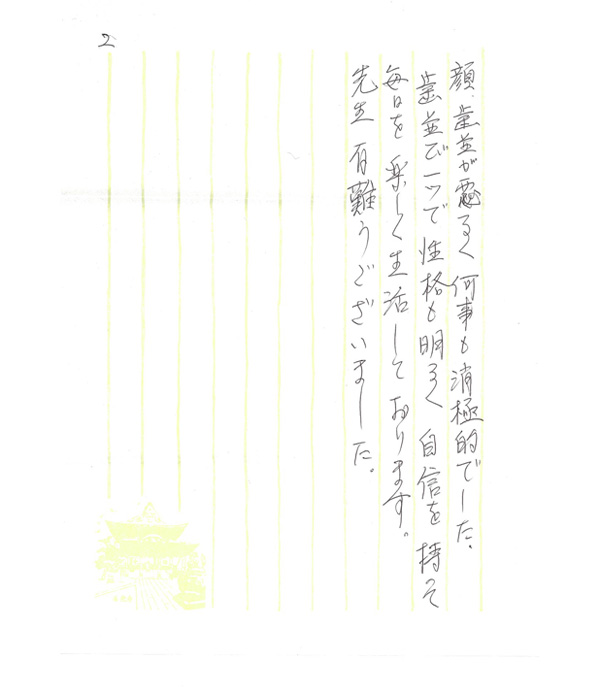 2
顔、歯並が悪るく何事も消極的でした。
歯並び一ツで性格も明るく自信を持って
毎日を楽しく生活しております。
先生有難うございました。